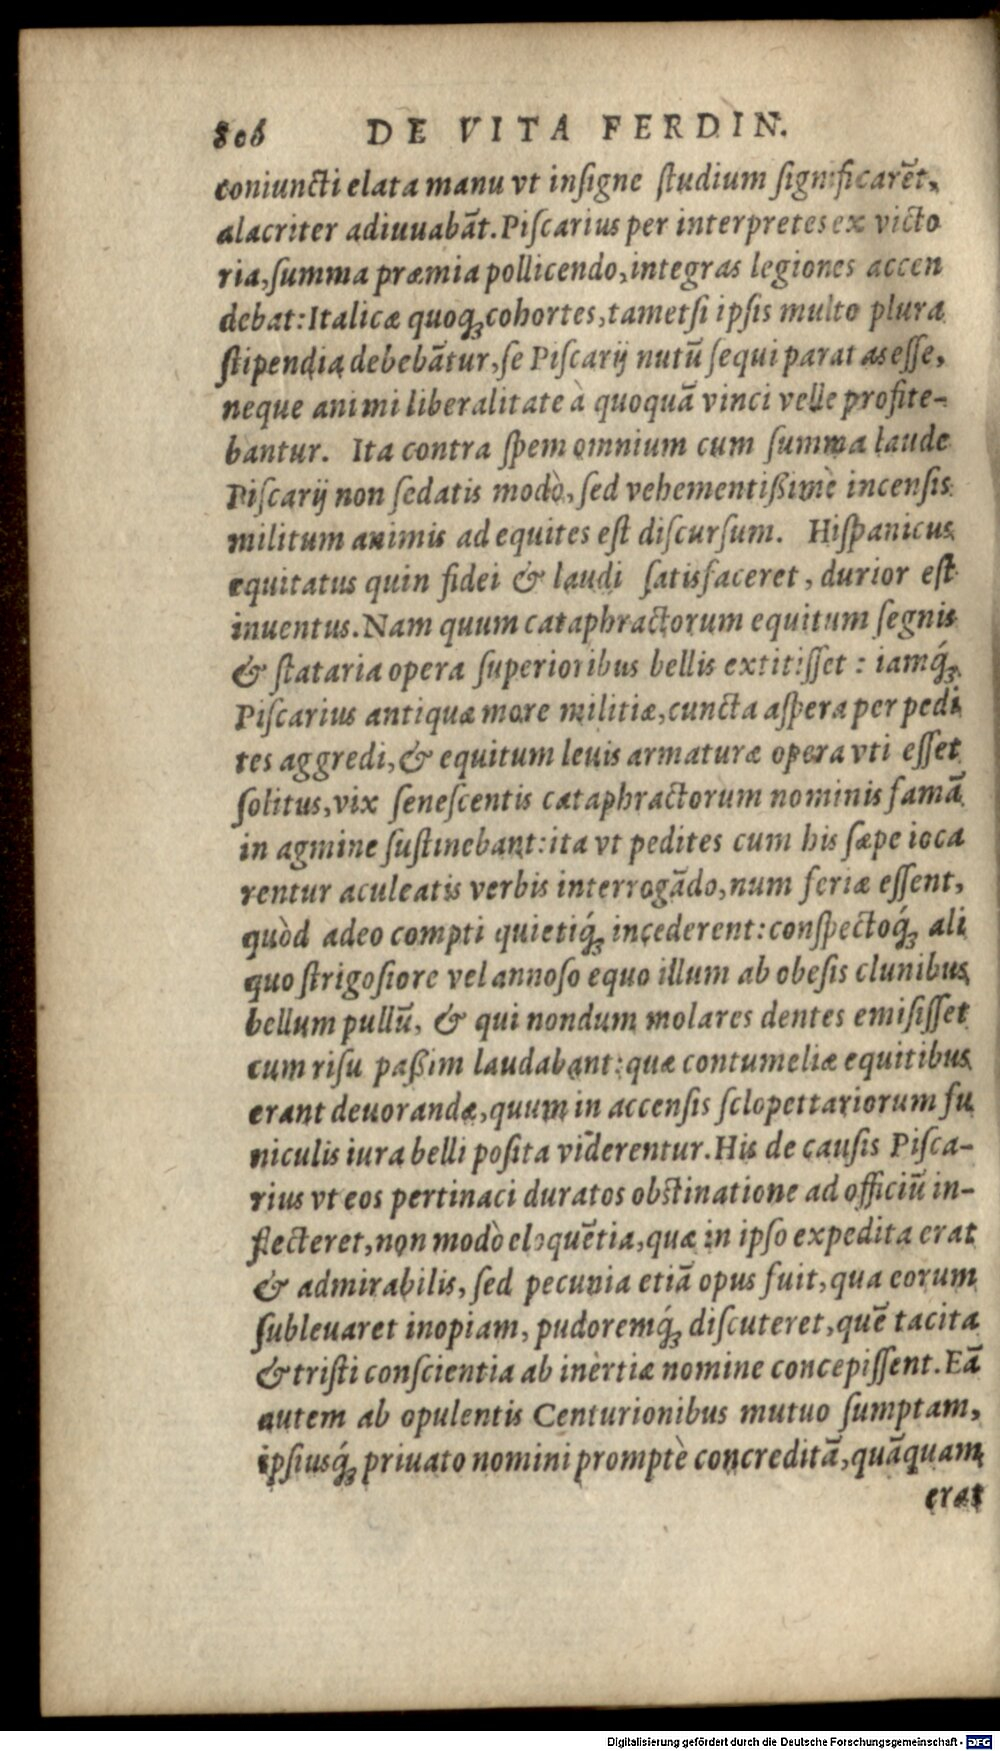 806 DE VITA FERDIN.
coniuncti elata manu vt inſigne ſtudium ſignificarēt,
alacriter adiuuabāt. Piſcarius per interpretes ex victo
ria, ſumma præmia pollicendo, integras legiones accen
debat: Italicæ quoqꝫ cohortes, tametſi ipſis multo plura
ſtipendia debebātur, ſe Piſcarij nutū ſequi paratas eſſe,
neque animi liberalitate à quoquā vinci velle profite-
bantur. Ita contra ſpem omnium cum ſumma laude
Piſcarij non ſedatis modò, ſed vehementißimè incenſis
militum animis ad equites eſt diſcurſum. Hiſpanicus
equitatus quin fidei & laudi ſatisfaceret, durior eſt
inuentus. Nam quum cataphractorum equitum ſegnis
& ſtataria opera ſuperioribus bellis extitiſſet : iamq́ꝫ
Piſcarius antiquæ more militiæ, cuncta aſpera per pedi
tes aggredi, & equitum leuis armaturæ opera vti eſſet
ſolitus, vix ſeneſcentis cataphractorum nominis famā
in agmine ſuſtinebant: ita vt pedites cum his ſæpe ioca
rentur aculeatis verbis interrogādo, num feriæ eſſent,
quòd adeo compti quietiq́ꝫ incederent: conſpectoq́ꝫ ali
quo ſtrigoſiore vel annoſo equo illum ab obeſis clunibus
bellum pullū, & qui nondum molares dentes emiſiſſet
cum riſu paßim laudabant: quæ contumeliæ equitibus
erant deuorandæ, quum in accenſis ſclopettariorum fu
niculis iura belli poſita viderentur. His de cauſis Piſca-
rius vt eos pertinaci duratos obſtinatione ad officiū in-
flecteret, non modò eloquētia, quæ in ipſo expedita erat
& admirabilis, ſed pecunia etiā opus fuit, qua eorum
ſubleuaret inopiam, pudoremq́ꝫ diſcuteret, quē tacita
& triſti conſcientia ab inertiæ nomine concepiſſent. Eā
autem ab opulentis Centurionibus mutuo ſumptam,
ipſiusq́ꝫ priuato nomini promptè concreditā, quāquam
erat
Digitalisierung gefördert durch die Deutsche Forschungsgemeinschaft - DFG